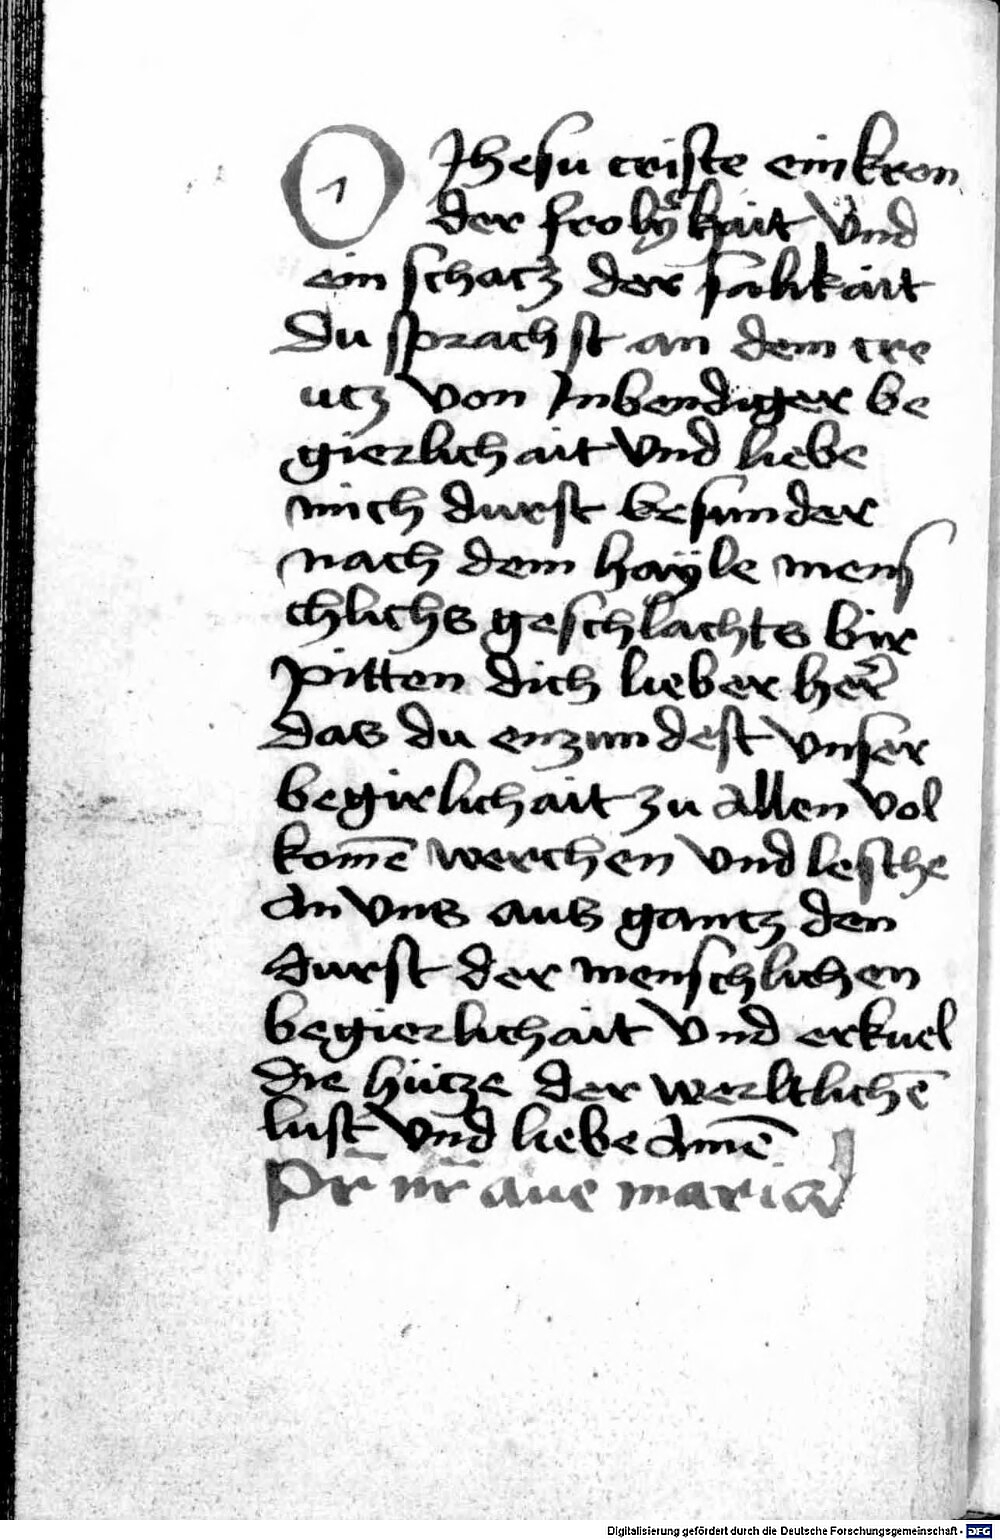 O Jhesu criste ein kron
der frolikait vnd
ein schatz der salikait
Du sprachst an dem cre
utz von Inbendiger be
gierlichait vnd liebe
mich durst besunder
nach dem hayle mens
chlichs geschlachts bir
pitten dich lieber her
das du enzundest vnser
begirlichait zu allen vol
komē werchen vnd lesche
an vns aus gantz den
durst der menschlichen
begierlichait vnd erkuel
die hütze der werltlichē
lust vnd liebe Amē
Pr̄ nr̄ aue maria
Digitalisierung gefördert durch die Deutsche Forschungsgemeinschaft - DFG